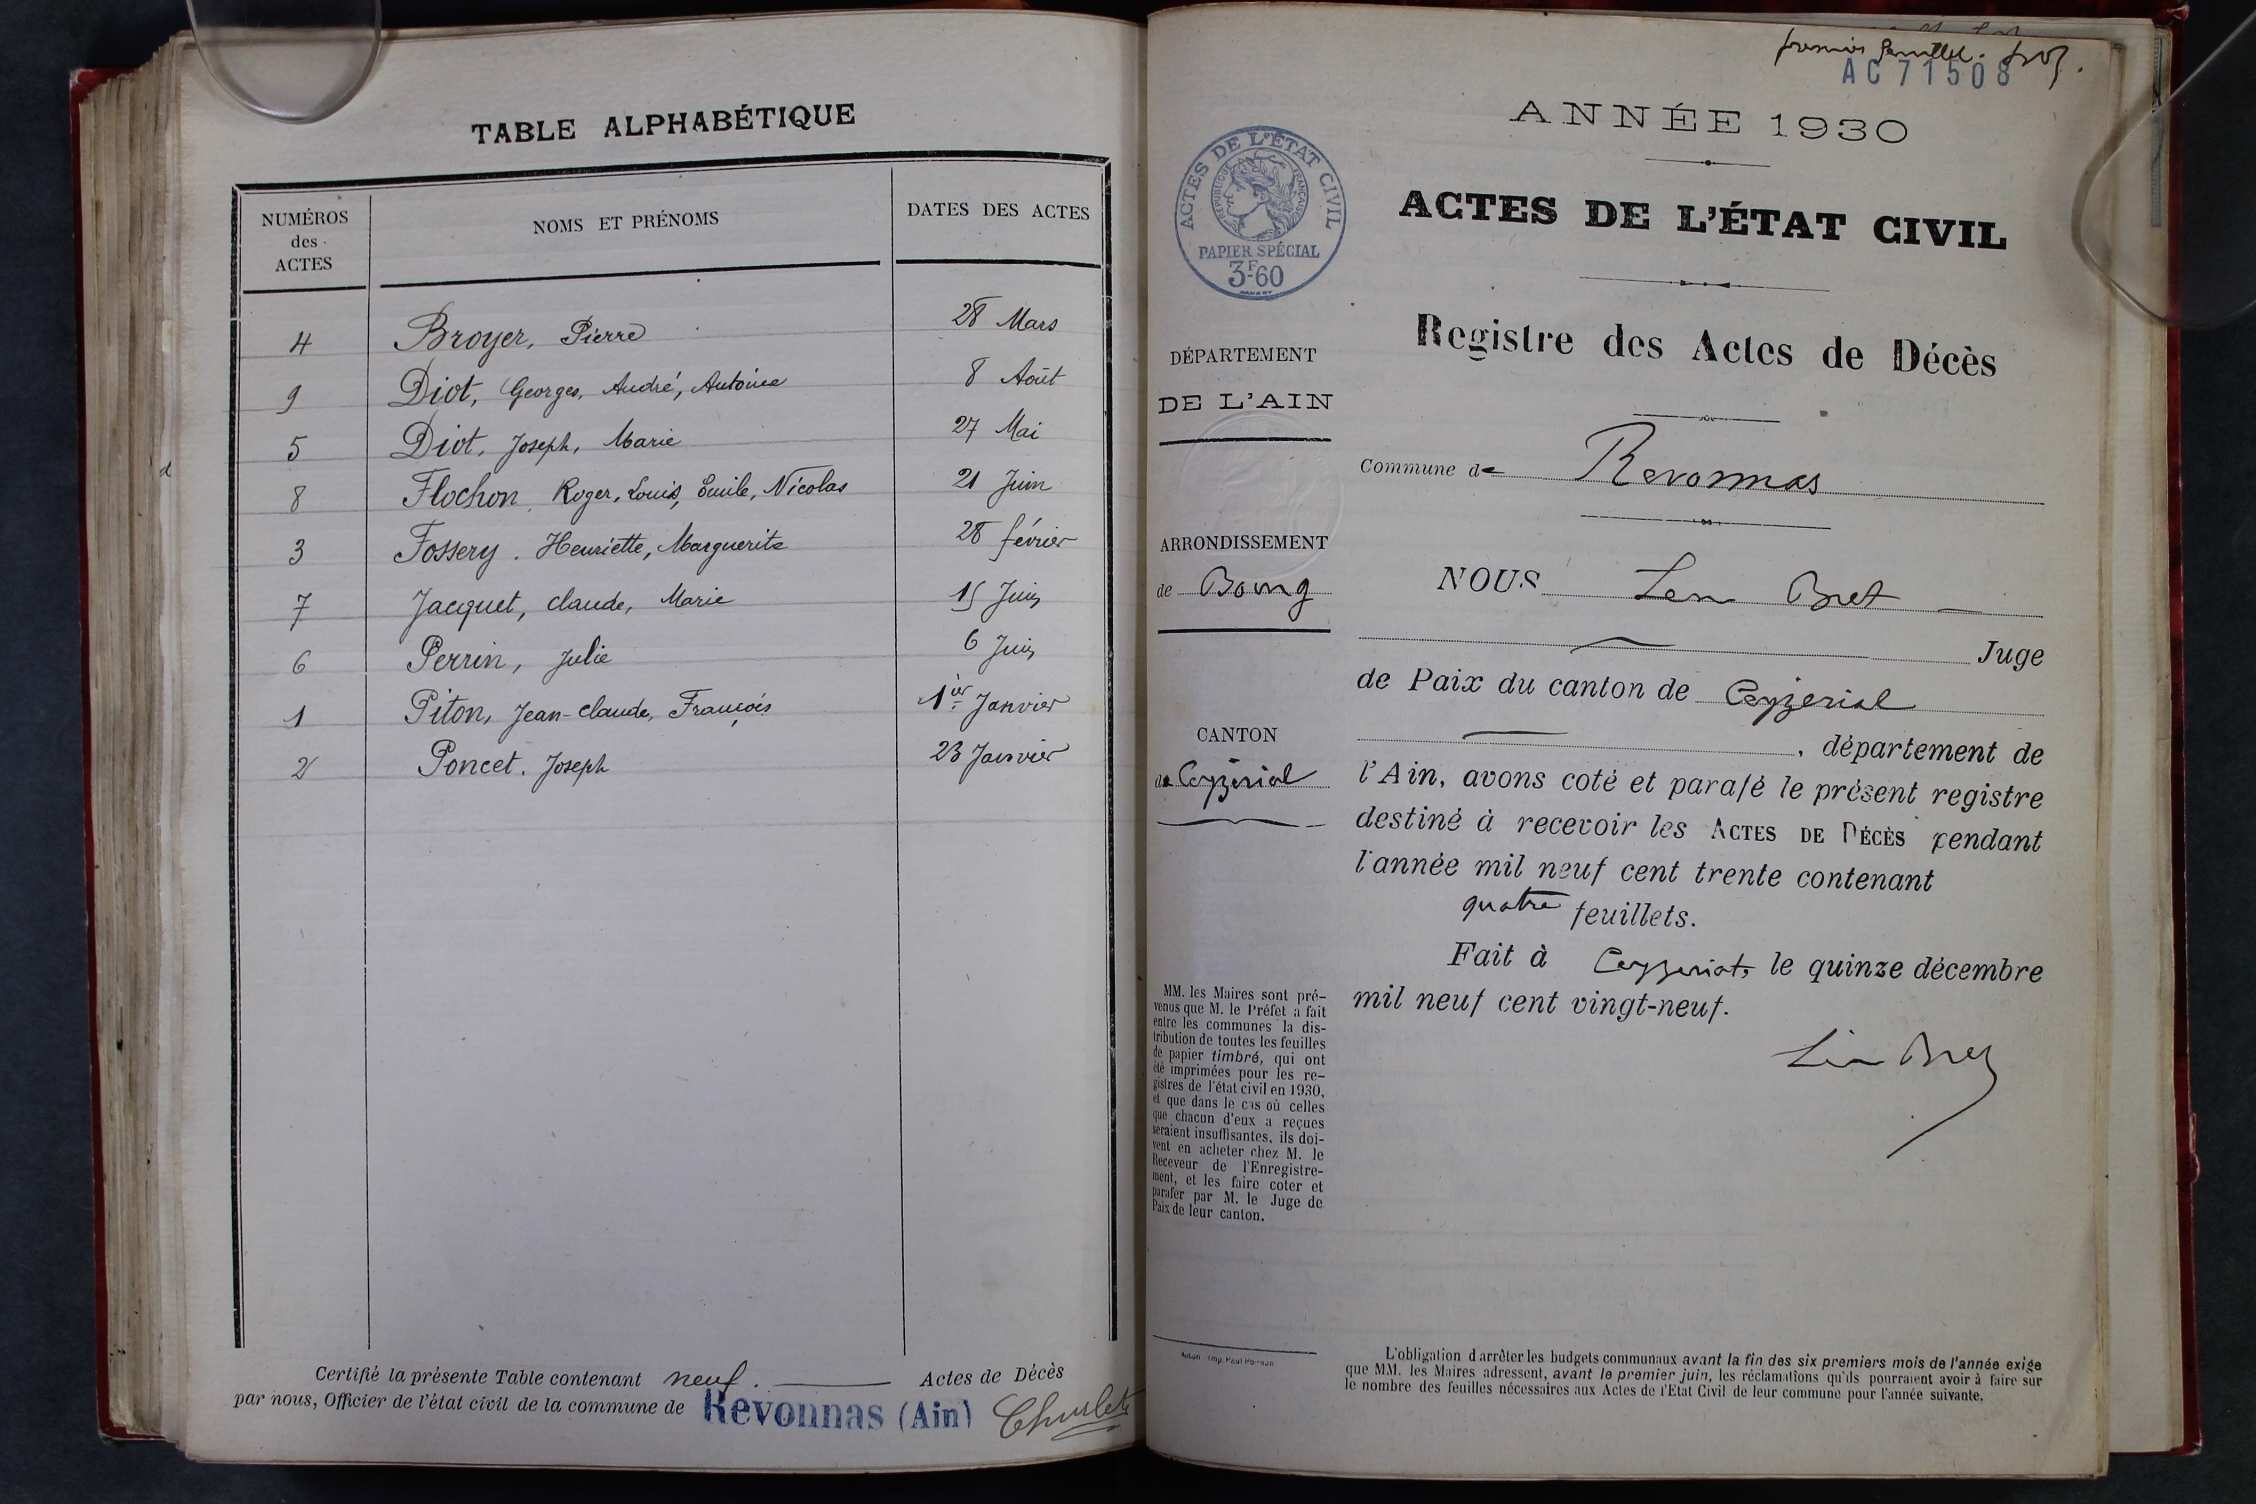 TABLE ALPHABÉTIQUE
NUMÉROS des ACTES
NOMS ET PRÉNOMS
DATES DES ACTES
4 Broyer, Pierre 28 Mars
9 Diot, Georges, André, Antoine 8 Août
5 Diot, Joseph, Marie 27 Mai
8 Flochon, Roger, Louis, Emile, Nicolas 21 Juin
3 Fossery. Henriette, Marguerite 28 février
7 Jacquet, Claude, Marie 15 Juin
6 Perrin, Julie 6 Juin
1 Piton, Jean-Claude, François 1er Janvier
2 Poncet. Joseph 23 Janvier
Certifié la présente Table contenant neuf. Actes de Décès
par nous, Officier de l'état civil de la commune de Revonnas (Ain)
premier feuillet.
AC 71508
ANNÉE 1930
ACTES DE L'ÉTAT CIVIL
RÉPUBLIQUE FRANÇAISE
PAPIER SPÉCIAL
3F60
ACTES DE L'ÉTAT CIVIL
Registre des Actes de Décès
DÉPARTEMENT
DE L'AIN
Commune de Revonnas
ARRONDISSEMENT
de Bourg
CANTON
de Ceyzériat
NOUS Léon Bret
Juge
de Paix du canton de Ceyzeriat
, département de
l'Ain, avons coté et parafé le présent registre
destiné à recevoir les ACTES DE DÉCÈS pendant
l'année mil neuf cent trente contenant
quatre feuillets.
Fait à Ceyzeriat, le quinze décembre
mil neuf cent vingt-neuf.
Léon Bret
MM. les Maires sont pré-
venus que M. le Préfet a fait
entre les communes la dis-
tribution de toutes les feuilles
de papier timbré, qui ont
été imprimées pour les re-
gistres de l'état civil en 1930,
et que dans le cas où celles
que chacun d'eux a reçues
seraient insuffisantes, ils doi-
vent en acheter chez M. le
Receveur de l'Enregistre-
ment, et les faire coter et
parafer par M. le Juge de
Paix de leur canton.
L'obligation d'arrêter les budgets communaux avant la fin des six premiers mois de l'année exige
que MM. les Maires adressent, avant le premier juin, les réclamations qu'ils pourraient avoir à faire sur
le nombre des feuilles nécessaires aux Actes de l'Etat Civil de leur commune pour l'année suivante.